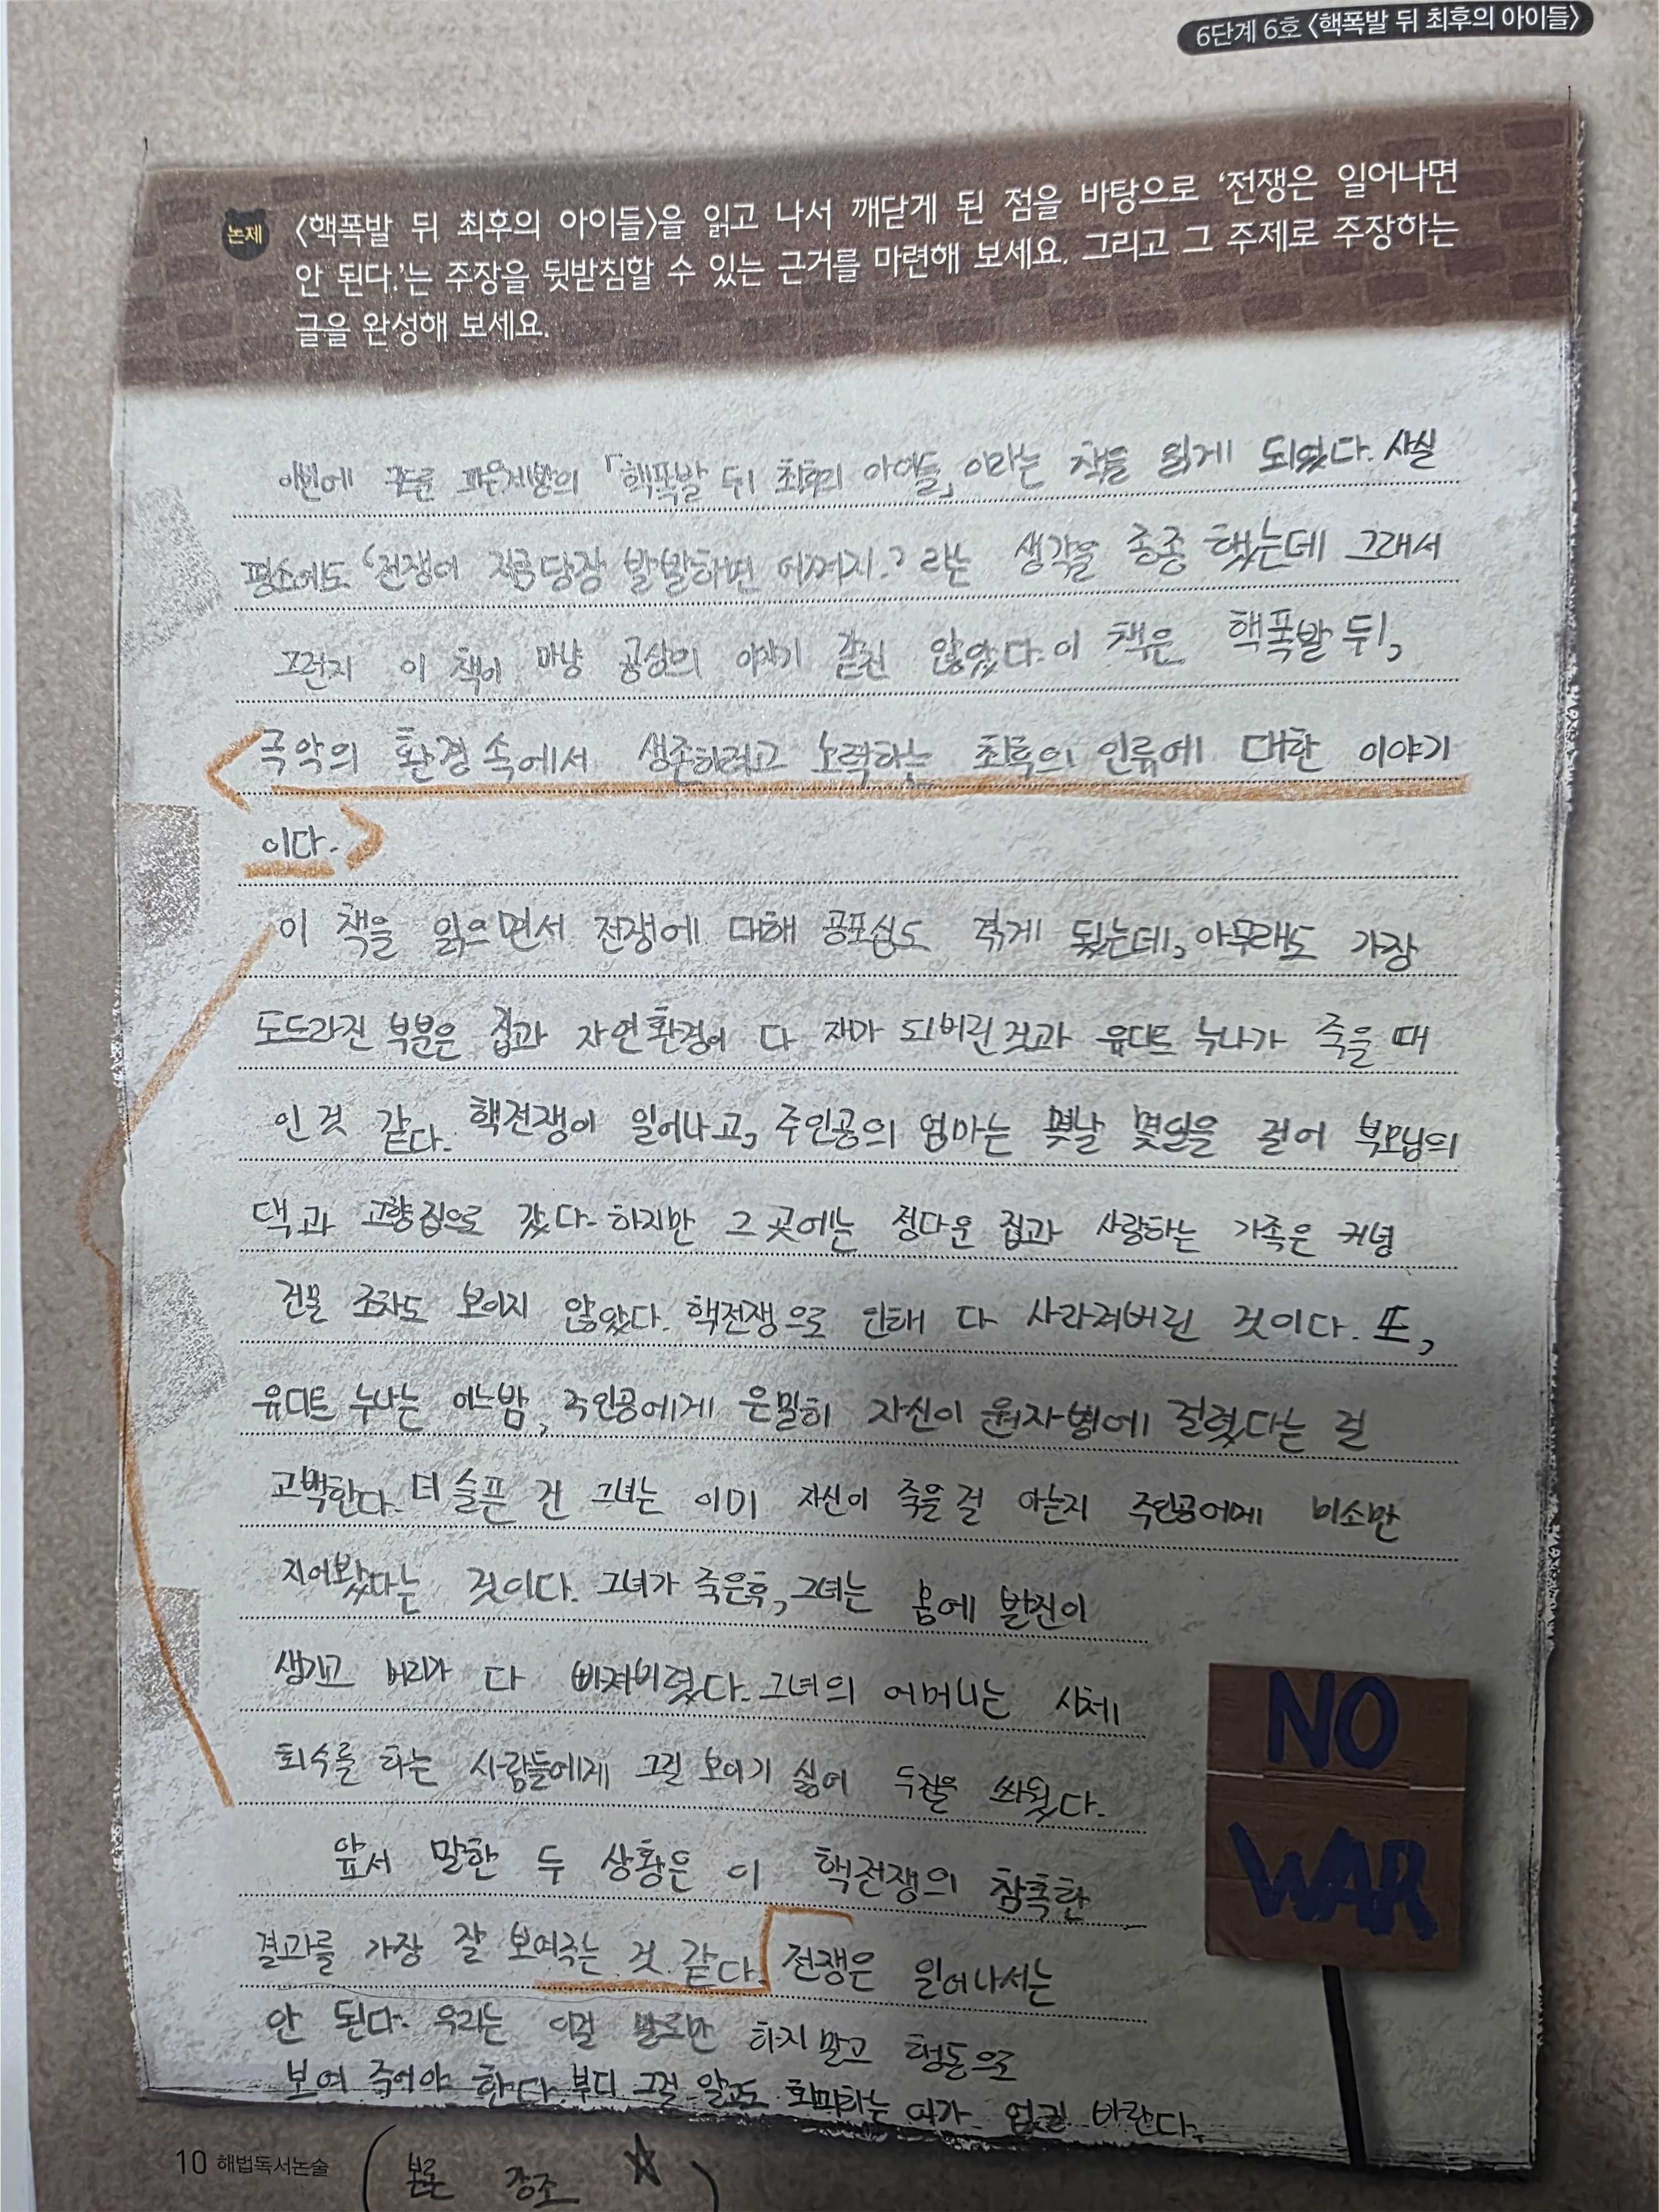 6단계 6호 <핵폭발 뒤 최후의 아이들>
논제
<핵폭발 뒤 최후의 아이들>을 읽고 나서 깨닫게 된 점을 바탕으로 '전쟁은 일어나면
안 된다.'는 주장을 뒷받침할 수 있는 근거를 마련해 보세요. 그리고 그 주제로 주장하는
글을 완성해 보세요.
이번에 구드룬 파우제방의 「핵폭발 뒤 최후의 아이들」이라는 책을 읽게 되었다. 사실
평소에도 '전쟁이 지금 당장 발발하면 어쩌지.?'라는 생각을 종종 했는데 그래서
그런지 이 책이 마냥 공상의 이야기 같진 않았다. 이 책은 핵폭발 뒤,
극악의 환경 속에서 생존하려고 노력하는 최후의 인류에 대한 이야기
이다.
이 책을 읽으면서 전쟁에 대해 공포심도 겪게 됐는데, 아무래도 가장
도드라진 부분은 집과 자연환경이 다 재가 되버린 것과 유디트 누나가 죽을 때
인 것 같다. 핵전쟁이 일어나고, 주인공의 엄마는 몇날 몇일을 걸어 부모님의
댁과 고향집으로 갔다. 하지만 그 곳에는 정다운 집과 사랑하는 가족은 커녕
건물 조차도 보이지 않았다. 핵전쟁으로 인해 다 사라져버린 것이다. 또,
유디트 누나는 어느밤, 주인공에게 은밀히 자신이 원자병에 걸렸다는 걸
고백한다. 더 슬픈 건 그녀는 이미 자신이 죽을 걸 아는지 주인공에게 미소만
지어봤다는 것이다. 그녀가 죽은후, 그녀는 몸에 발진이
생기고 머리가 다 빠져버렸다. 그녀의 어머니는 시체
회수를 하는 사람들에게 그걸 보이기 싫어 두건을 씌웠다.
앞서 말한 두 상황은 이 핵전쟁의 참혹한
결과를 가장 잘 보여주는 것 같다. 전쟁은 일어나서는
안 된다. 우리는 이걸 말로만 하지 말고 행동으로
보여 주어야 한다. 부디 그걸 알고도 회피하는 이가 없길 바란다.
NO
WAR
10 해법독서논술
(본론 강조 ☆)